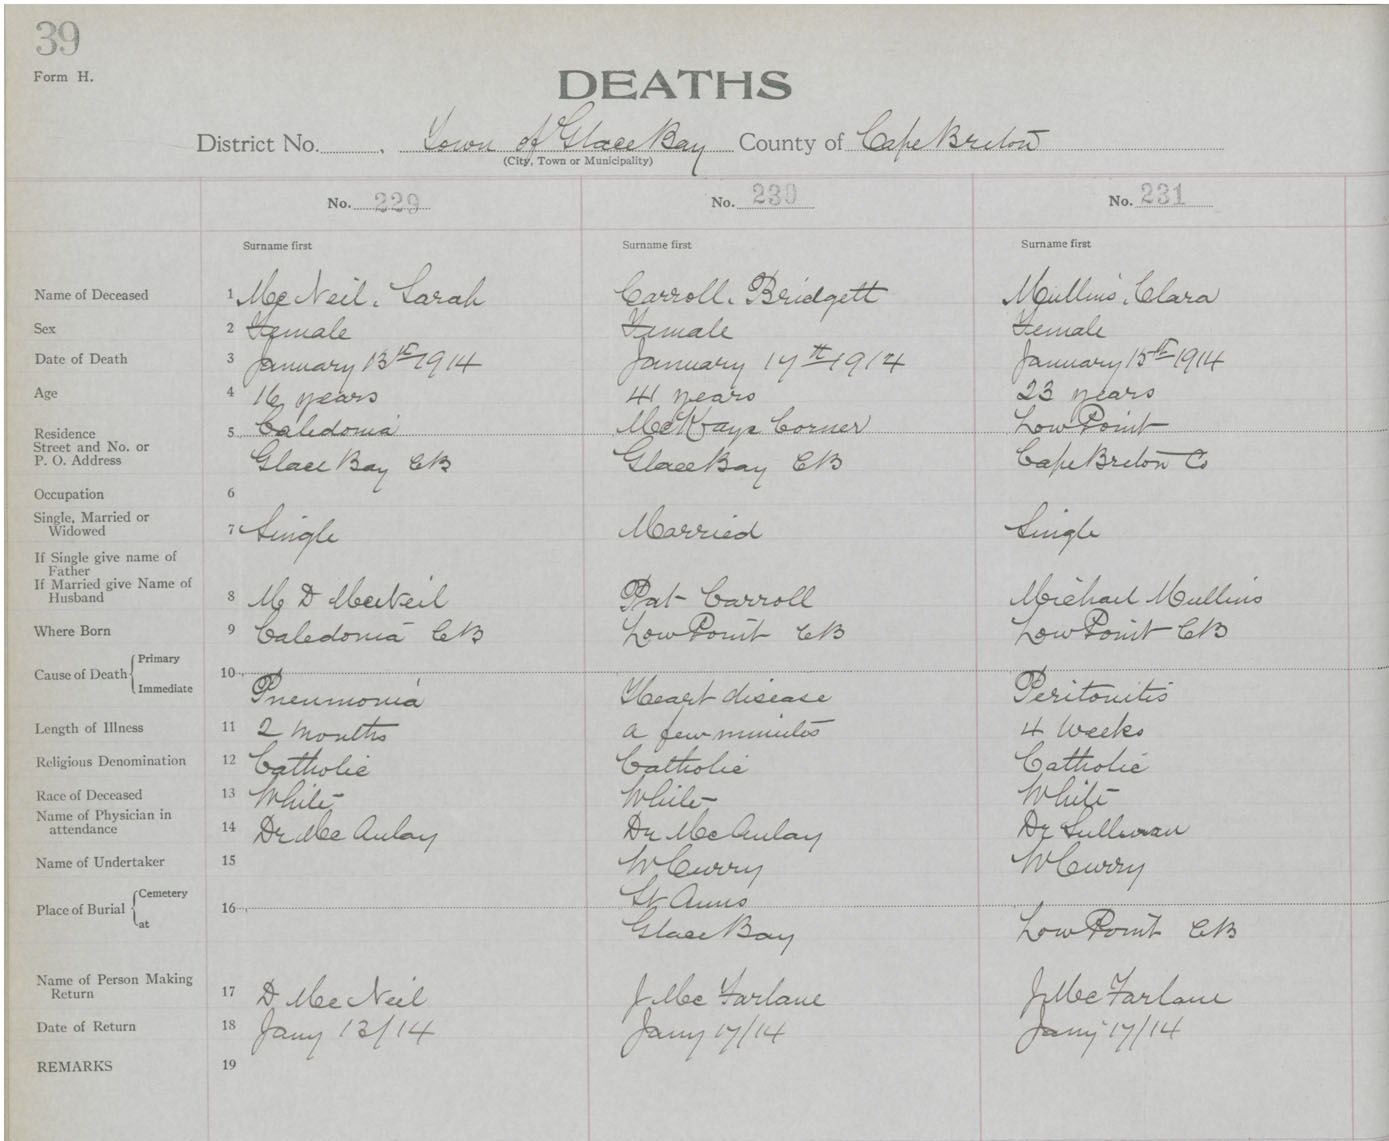 39
Form H.
DEATHS
District No. Town of Glace Bay County of Cape Breton
(City, Town or Municipality)
No. 229 No. 230 No. 231
Surname first Surname first Surname first
Name of Deceased 1 McNeil, Sarah Carroll, Bridgett Mullins, Clara
Sex 2 Female Female Female
Date of Death 3 January 13th 1914 January 17th 1914 January 15th 1914
Age 4 16 years 41 years 23 years
Residence 5 Caledonia McKays Corner Low Point
Street and No. or
P. O. Address Glace Bay CB Glace Bay CB Cape Breton Co
Occupation 6
Single, Married or
Widowed 7 Single Married Single
If Single give name of
Father
If Married give Name of
Husband 8 M D McNeil Pat Carroll Michael Mullins
Where Born 9 Caledonia CB Low Point CB Low Point CB
Cause of Death Primary
Immediate 10 Pneumonia Heart disease Peritonitis
Length of Illness 11 2 months a few minutes 4 weeks
Religious Denomination 12 Catholic Catholic Catholic
Race of Deceased 13 White White White
Name of Physician in
attendance 14 Dr McAulay Dr McAulay Dr Sullivan
Name of Undertaker 15 W Curry W Curry
Place of Burial Cemetery 16 St Anns
at Glace Bay Low Point CB
Name of Person Making
Return 17 D McNeil J McFarlane J McFarlane
Date of Return 18 Jany 13/14 Jany 17/14 Jany 17/14
REMARKS 19